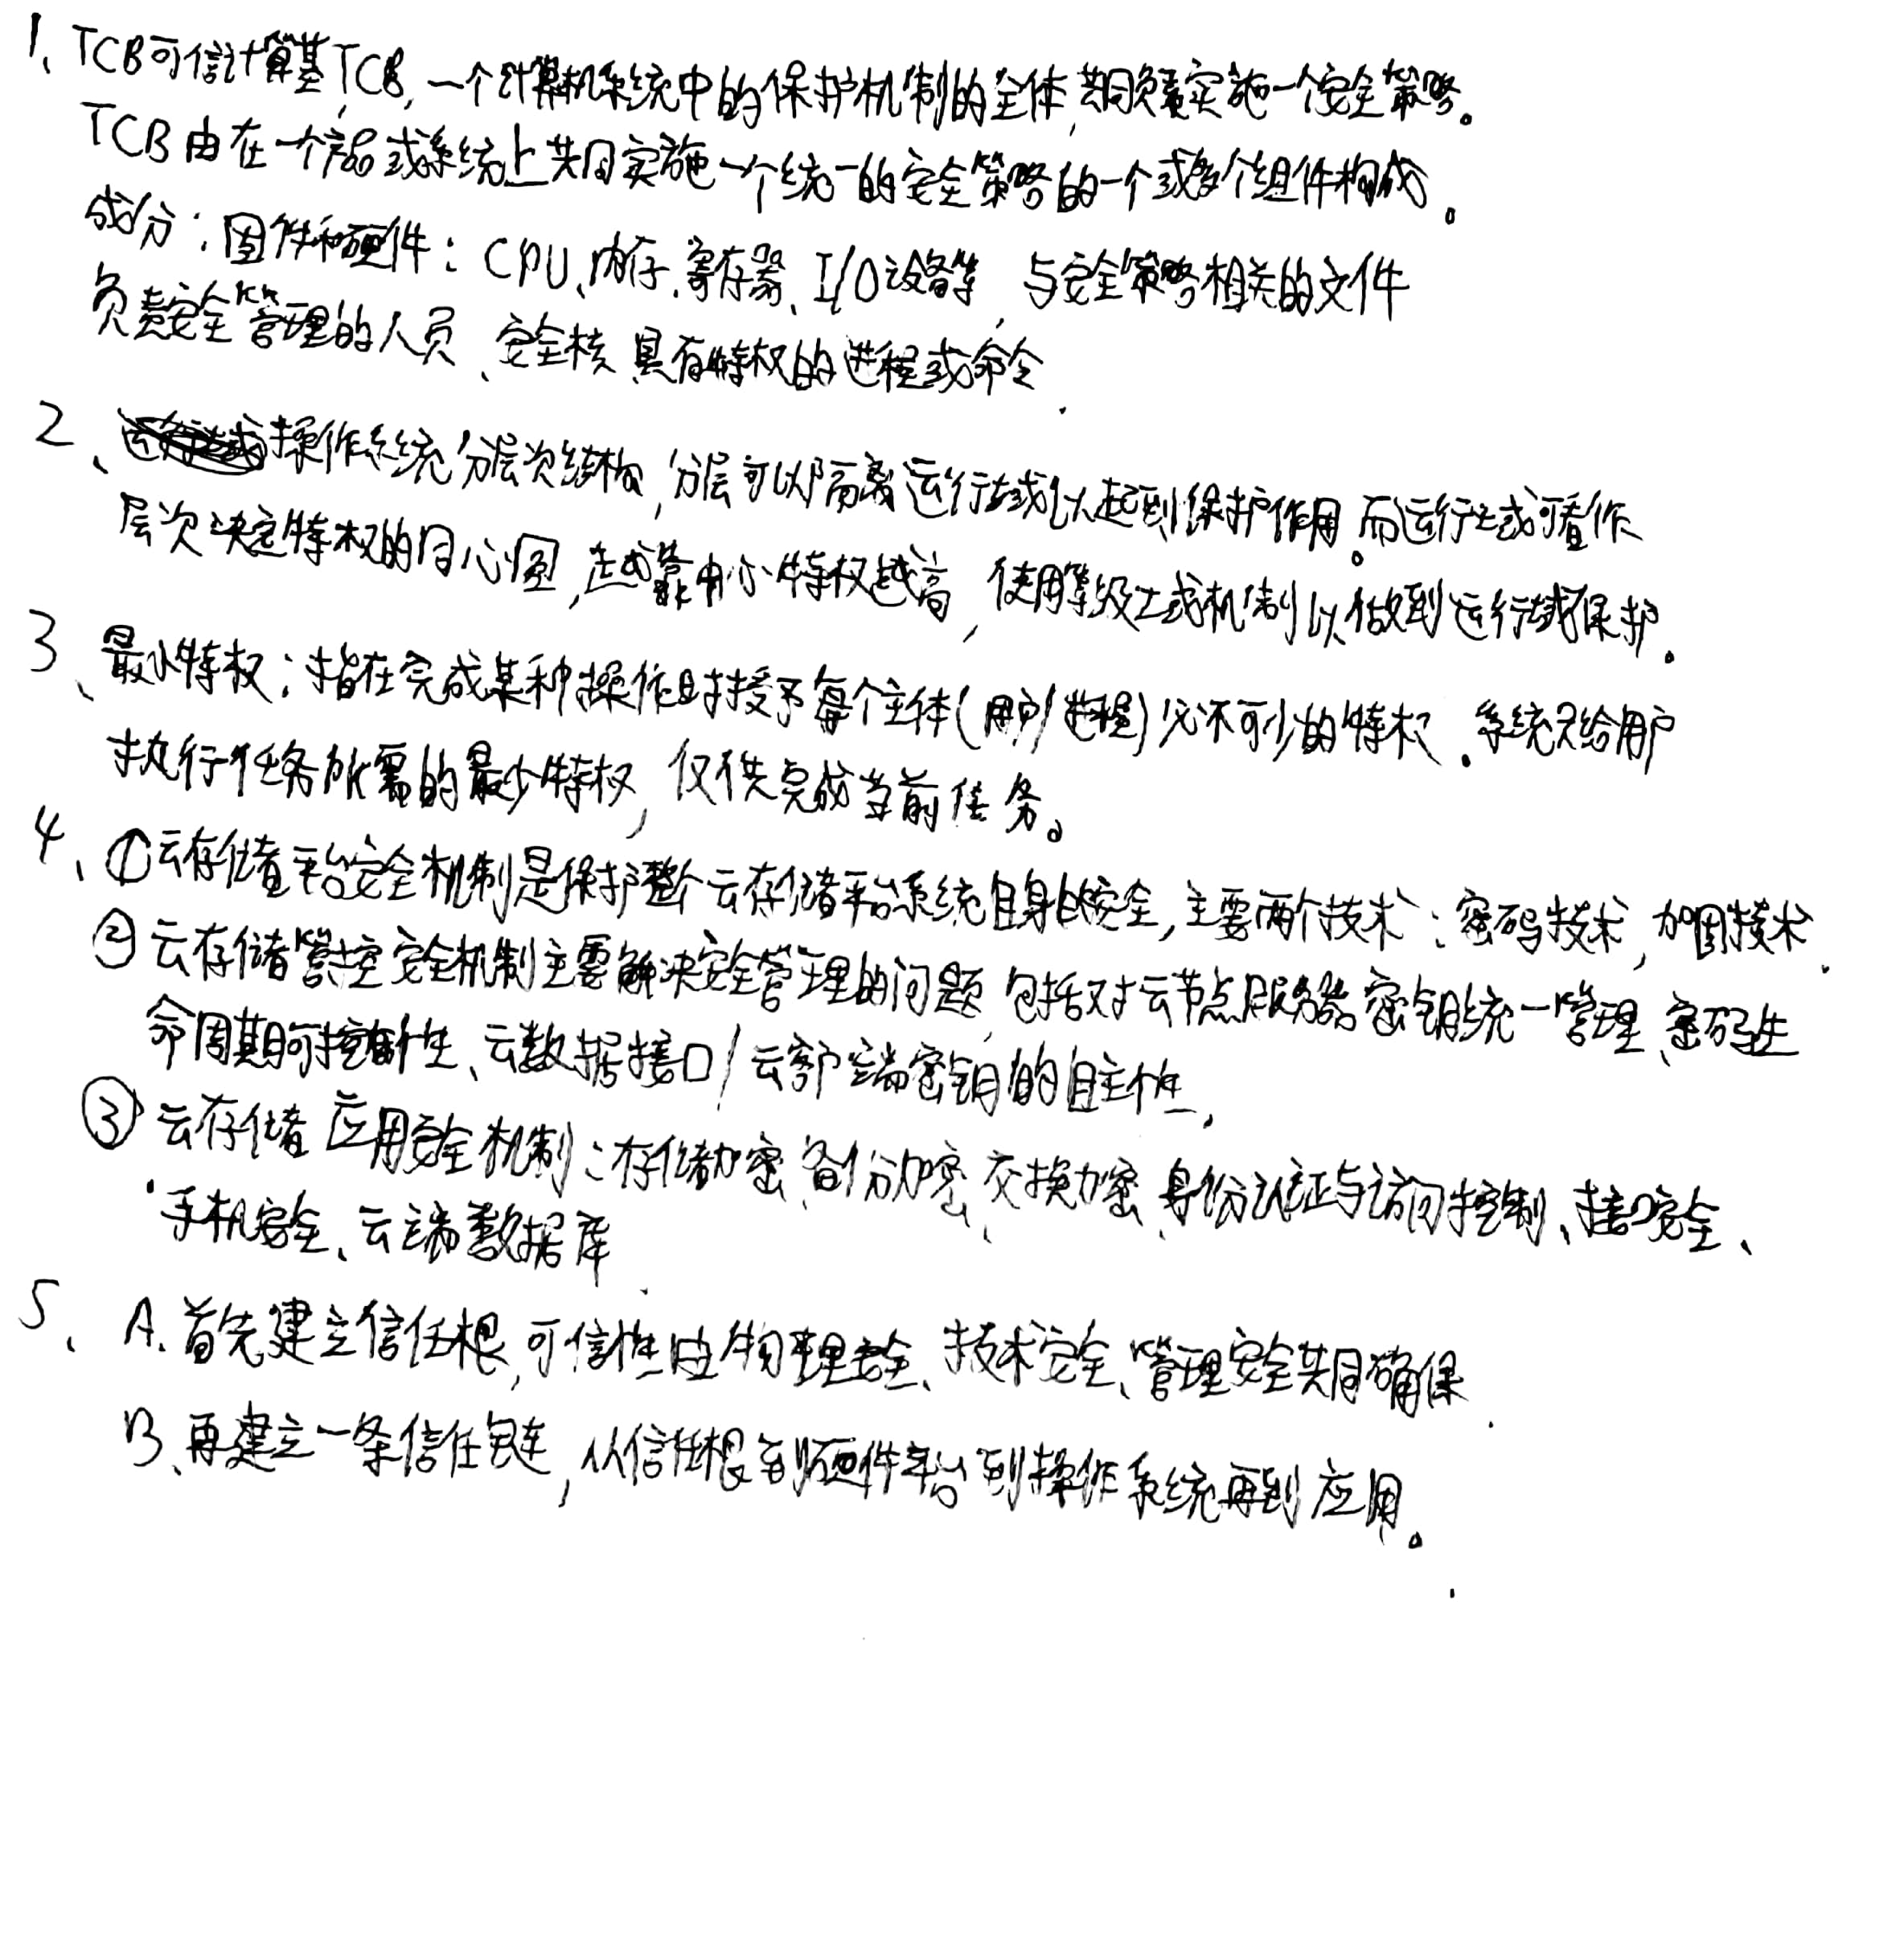 1、TCB可信计算基TCB,一个计算机系统中的保护机制的全体,共同负责实施一个安全策略。
TCB由在一个产品或系统上共同实施一个统一的安全策略的一个或多个组件构成。
成分:固件和硬件:CPU、内存、寄存器、I/O设备等、与安全策略相关的文件
负责安全管理的人员、安全核、具有特权的进程或命令.
2、操作系统分层次结构,分层可以隔离运行域以起到保护作用。而运行域可看作
层次决定特权的同心圆,越靠中心特权越高,使用等级域机制以做到运行域保护.
3、最小特权:指在完成某种操作时授予每个主体(用户/进程)必不可少的特权.系统只给用户
执行任务所需的最少特权,仅供完成当前任务。
4、①云存储平台安全机制是保护整个云存储平台系统自身的安全,主要两个技术:密码技术,加固技术.
②云存储管控安全机制主要解决安全管理的问题,包括对云节点服务器密钥统一管理、密码生
命周期可控制性、云数据接口/云客户端密钥的自主性.
③云存储应用安全机制:存储加密、备份加密、交换加密、身份认证与访问控制、接口安全、
手机安全、云端数据库.
5、A.首先建立信任根,可信性由物理安全、技术安全、管理安全共同确保.
B、再建立一条信任链,从信任根到硬件平台到操作系统再到应用。